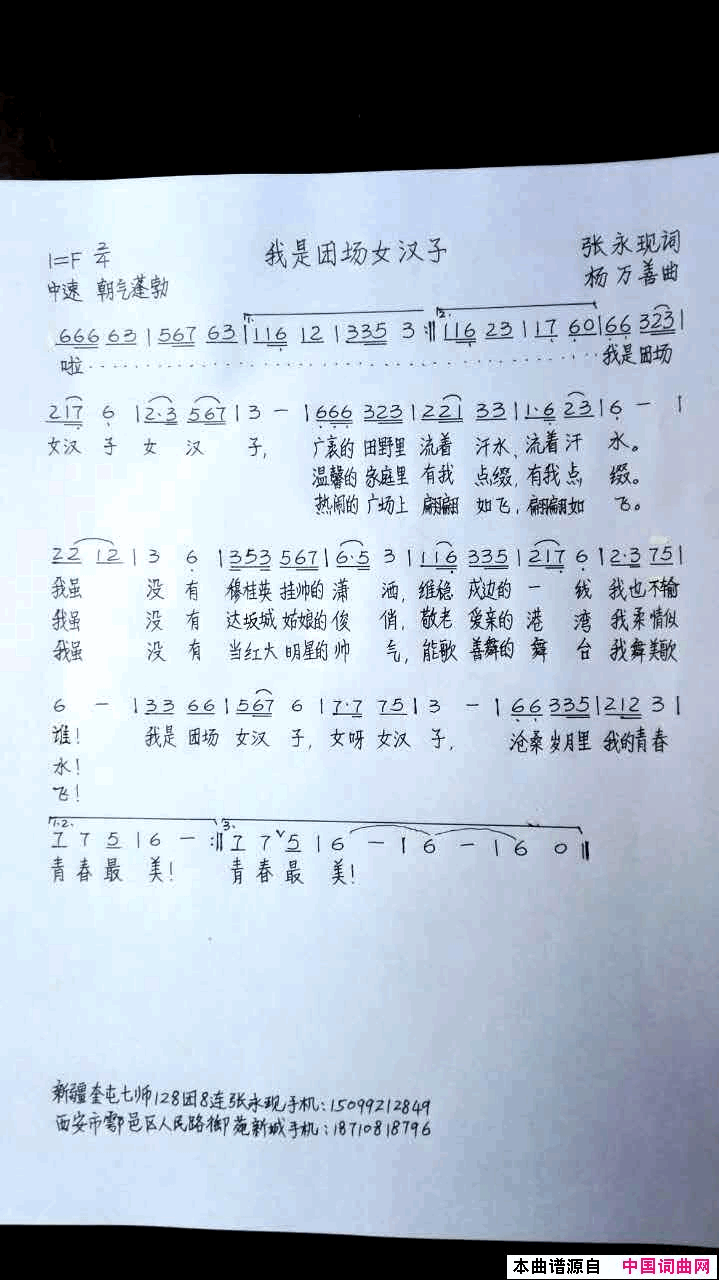 1=F 2/4 我是团场女汉子 张永现词
中速 朝气蓬勃 杨万善曲
1. 2.
666 63 | 567 63 | 116 12 | 335 3 :‖ 116 23 | 17 60 | 66 323 |
啦 我是团场
217 6 | 2·3 567 | 3 - | 666 323 | 221 33 | 1·6 23 | 6 - |
女汉子 女汉子, 广袤的 田野里 流着 汗水,流着汗 水。
温馨的 家庭里 有我 点缀,有我点 缀。
热闹的 广场上 翩翩 如飞,翩翩如 飞。
22 12 | 3 6 | 353 567 | 6·5 3 | 116 335 | 217 6 | 2·3 75 |
我虽 没有 穆桂英 挂帅的潇 洒,维稳 戍边的一 线 我也不输
我虽 没有 达坂城 姑娘的俊 俏,敬老 爱亲的港 湾 我柔情似
我虽 没有 当红大 明星的帅 气,能歌 善舞的舞 台 我舞美歌
6 - | 33 66 | 567 6 | 7·7 75 | 3 - | 66 335 | 212 3 |
谁! 我是 团场 女汉 子,女呀 女汉 子, 沧桑 岁月里 我的青春
水!
飞!
1.2. 3.
7 7 5 | 6 - :‖ 7 7 ∨ 5 | 6 - | 6 - | 6 0 ‖
青春最 美! 青春最 美!
新疆奎屯七师128团8连张永现手机:15099212849
西安市鄠邑区人民路御苑新城手机:18710818796
本曲谱源自 中国词曲网